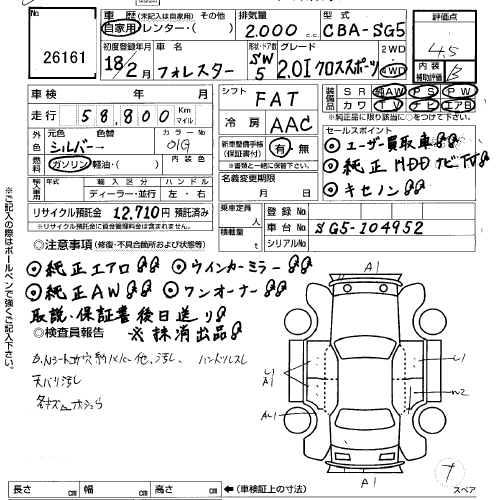 No.
26161
車歴 (未記入は自家用) その他
自家用 レンター・( )
排気量
2.000 c.c.
型式
CBA-SG5
評価点
4.5
初度登録年月
18/2月
車名
フォレスター
形状・ドア数
SW
5
グレード
2.0I クロススポーツ
2WD
4WD
内装
補助評価
B
車検 年 月
走行 58,800 Km マイル
シフト
FAT
冷房
AAC
装備品
SR 純AW PS PW
カワ TV ナビ エアB
※純正品に限り該当項目に○をつけて下さい
外色
元色 色替
シルバー
カラーNo
01G
燃料
ガソリン・軽油・( )
内装色
新車整備手帳
(保証書付)
有・無
※書類と一緒に保管して下さい。
セールスポイント
◉ユーザー買取車
◉純正HDDナビTV付
◉キセノン
輸入車用
年式 輸入区分 ハンドル
ディーラー・並行 左・右
名義変更期限
月 日
リサイクル預託金 12,710円 預託済み
※リサイクル預託金に資金管理料金は含まれません。
乗車定員
人
積載量
t
登録No
車台No SG5-104952
シリアルNo
◎注意事項 (修復・不具合箇所および状態等)
◉純正エアロ ◉ウインカーミラー
◉純正AW ◉ワンオーナー
取説・保証書後日送り
※抹消出品
◎検査員報告
ハンドルスレ
天バリ汚し
A1
U1
A1
A1
A1
※ご記入の際はボールペンで強くご記入下さい。
長さ cm 幅 cm 高さ cm ←(車検証上の寸法)
スペア